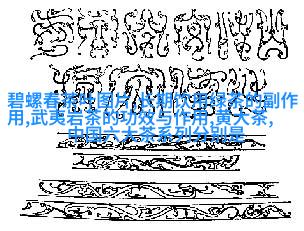 碧螺春茶叶图片,长期饮用绿茶的副作
用,武夷岩茶的功效与作用,黄大茶,
中国六大茶系列分别是